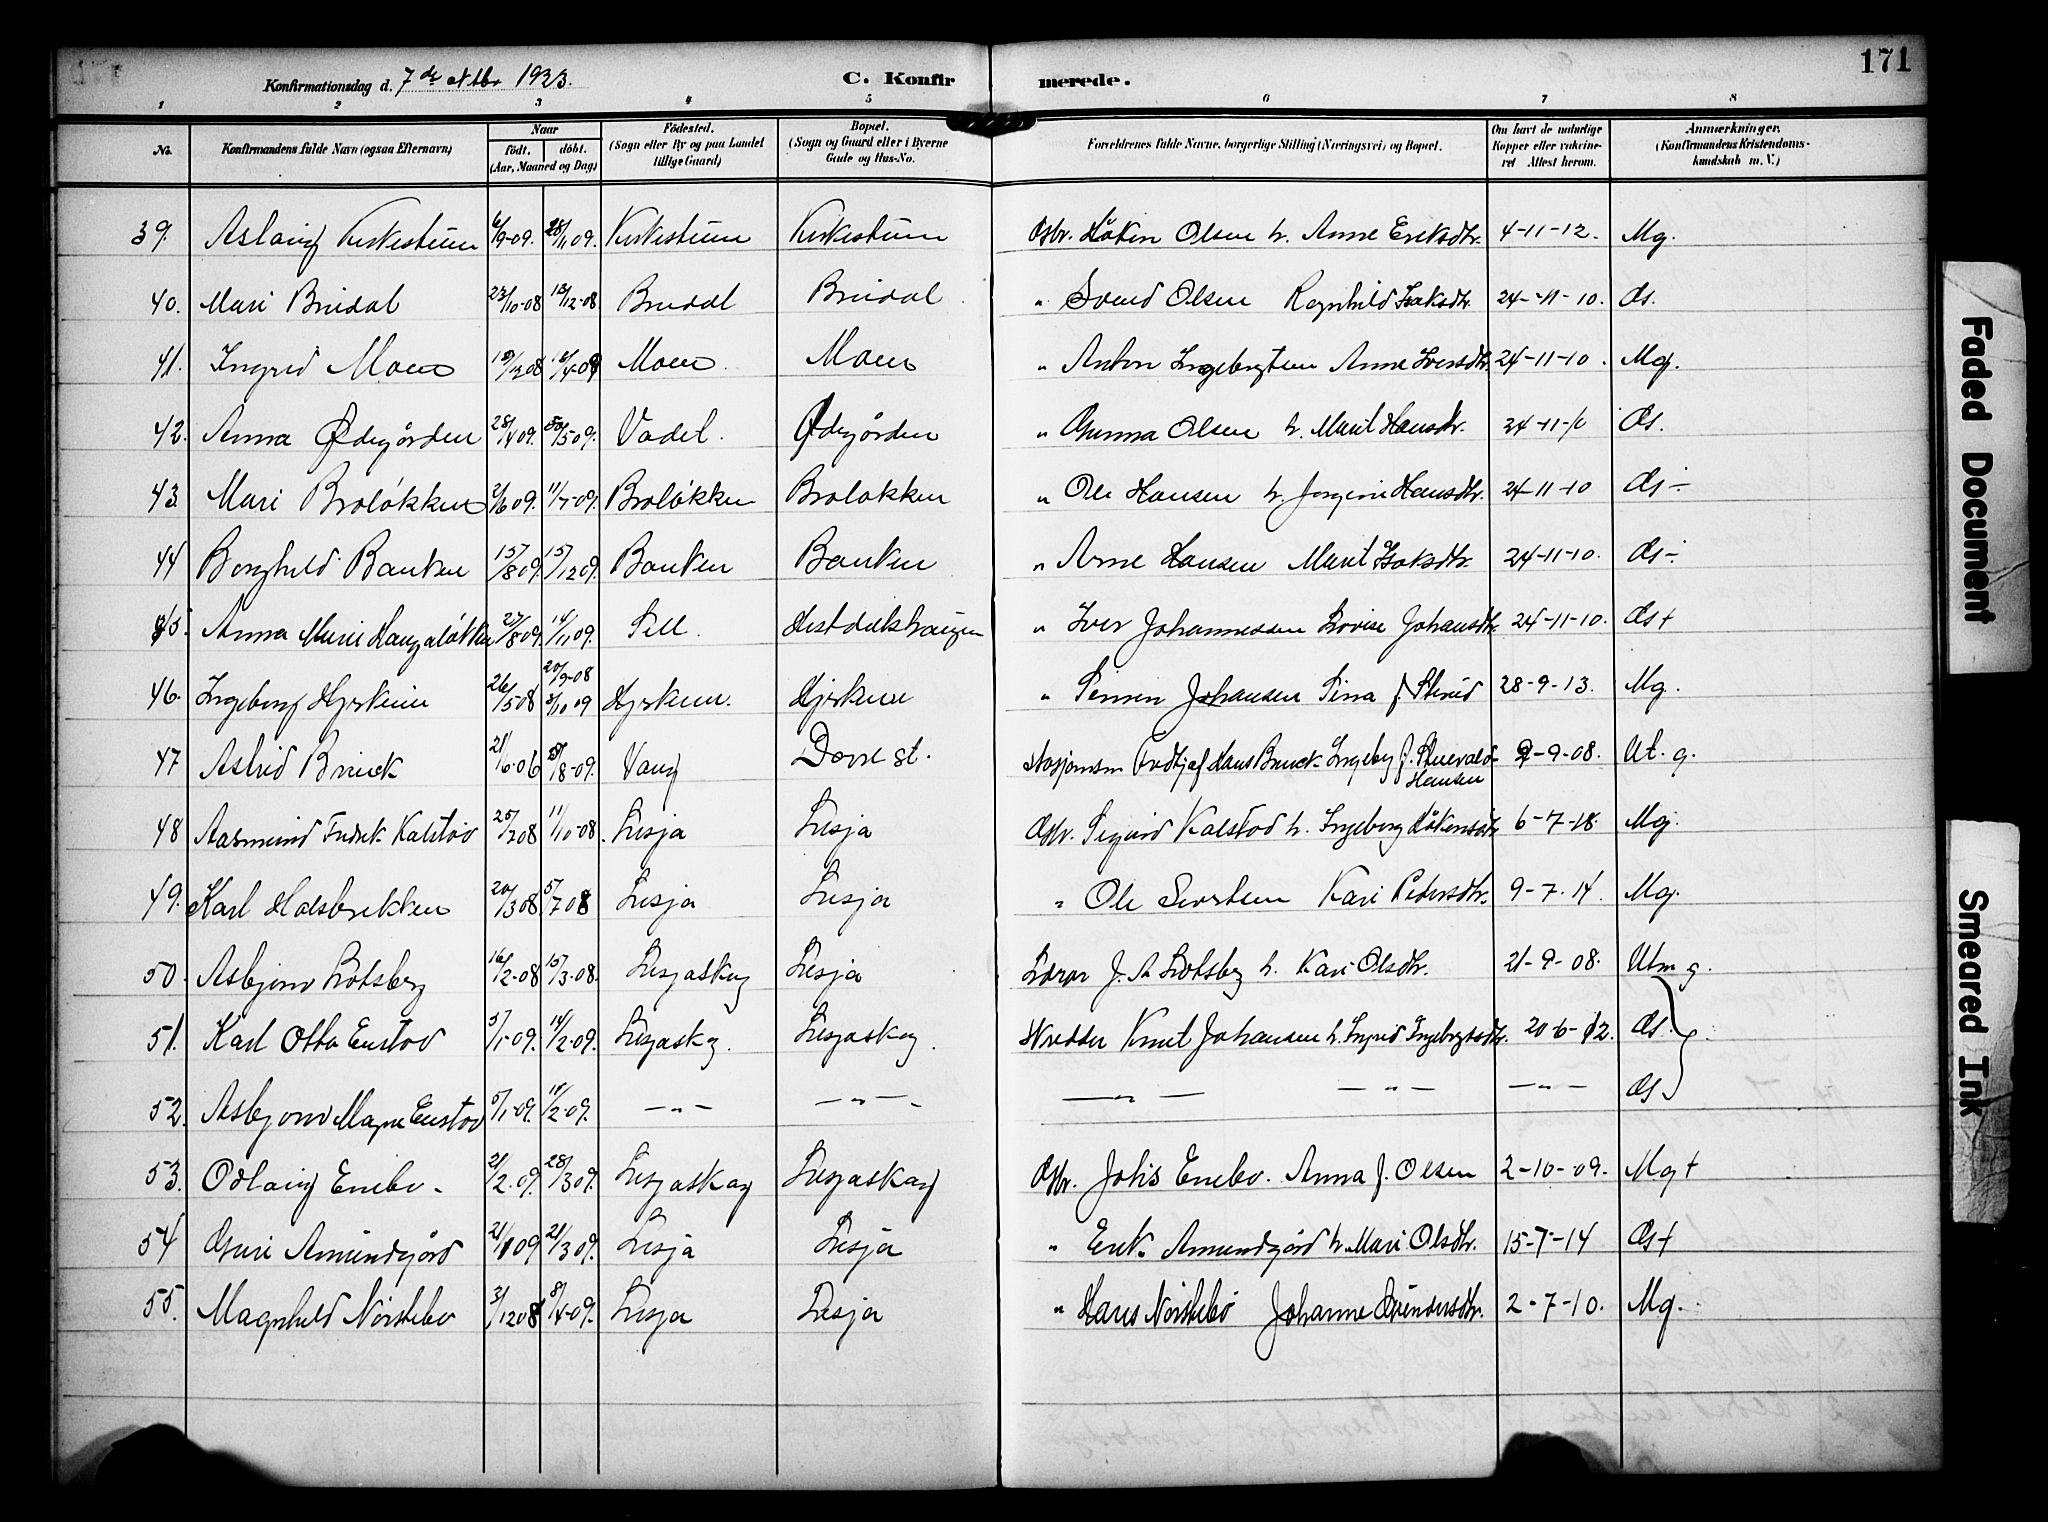 171
Konfirmationsdag d. 7 de oktbr 1923. C. Konfirmerede.
1 2 3 4 5 6 7 8
No. Konfirmandens fulde Navn (ogsaa Efternavn) Naar født. døbt. (Aar, Maaned og Dag) Fødested. (Sogn eller By og paa Landet tillige Gaard) Bopæl. (Sogn og Gaard eller i Byerne Gade og Hus-No. Forældrenes fulde Navne, borgerlige Stilling (Næringsvei) og Bopæl. Om havt de naturlige Kopper eller vakcineret Attest herom. Anmærkninger. (Konfirmandens Kristendomskundskab m. V.)
39. Aslaug Kirkestuen 6/9-09. 28/11 09. Kirkestuen Kirkestuen Gbr. Håken Olsen h. Anne Eriksdtr. 4-11-12. Mg.
40. Mari Brudal 23/10-08 13/12-08 Brudal Brudal " Svend Olsen Ragnhild Isaksdtr. 24-11-10. Gs.
41. Ingrid Moen Moen Moen " Anton Ingebrigtsen Anne Iversdtr. 24-11-10. Mg.
42. Anna Ødegården 28/4 09. 30/5 09. Vadet. Ødegården " Olsen h. Marit Hansdtr. 24-11-10 Gs.
43. Mari Broløkken 2/6 09. 11/7-09. Broløkken Broløkken " Ole Hansen h. Jørgine Hansdtr. 24-11-10 Gs ÷
44 Borghild Banken 15/8 09. 15/12 09. Banken Banken " Arne Hansen Marit Isaksdtr. 24-11-10. Gs ÷
45. Anna Marie Haugaløkken 23/8 09. 14/11 09. Sell. " Iver Johannessen Lovise Johansdtr. 24-11-10. Gs +
46. Ingeborg Hjerkinn 26/5 08 20/9-08 Hjerkinn. Hjerkinn " Johansen 28-9-13. Mg.
47 Astrid Bruck 21/6-06 Vang Dovre st. Hans Bruck Ingeborg f. Hansen 2-9-08. Ut. g.
48 Aasmund Fredrik Kalstov 25/2 08 11/10-08. Lesja Lesja Gbr. Sigurd Kalstad h. Ingeborg Håkensdtr. 6-7-18. Mg.
49. Karl Holsbrekken 20/3 08 5/7 08 Lesja Lesja " Ole Sivertsen Kari Pedersdtr. 9-7-14. Mg.
50. Asbjørn Botsberg 16/2-08 15/3-08. Lesjaskog Lesja Lærer J. A. Botsberg h. Kari Olsdtr. 21-9-08. Utm g.
51. Karl Otto Enstov 5/1-09. 14/2-09. Lesjaskog. Lesjaskog. Skredder Knut Johansen h. Ingrid Ingebrigtsdtr. 20-6-12. Gs.
52. Asbjørn Magne Enstov 5/1-09. 14/2-09. — " — — " — — " — — " — — " — Gs
53. Odlaug Enebo 21/2-09. 28/3 09. Lesjaskog Lesjaskog Gbr. Johs Enebo. Anna f. Olsen 2-10-09. Mg +
54 Guri Amundgård 21/1 09 21/3 09. Lesja Lesja " Erik Amundgård h. Mari Olsdtr. 15-7-14 Gs +
55. Magnhild Nørstebo 3/12 08 8/4-09. Lesja Lesja " Hans Nørstebø Johanne 2-7-10. Mg.
Faded Document
Smeared Ink